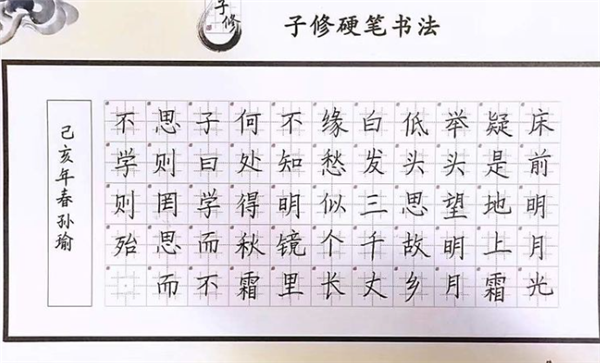 子修
子修硬笔书法
床前明月光
疑是地上霜
举头望明月
低头思故乡
白发三千丈
缘愁似个长
不知明镜里
何处得秋霜
子曰学而不
思则罔思而
不学则殆
己亥年春孙瑜